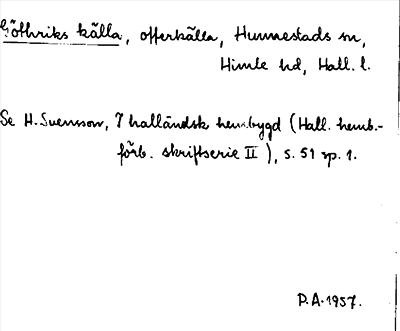 Göthriks källa, offerkälla, Hunnestads sn,
Himle hd, Hall. l.
Se H. Svensson, I halländsk hembygd (Hall. hemb.-
förb. skriftserie II), s. 51 sp. 1.
P.A. 1957.